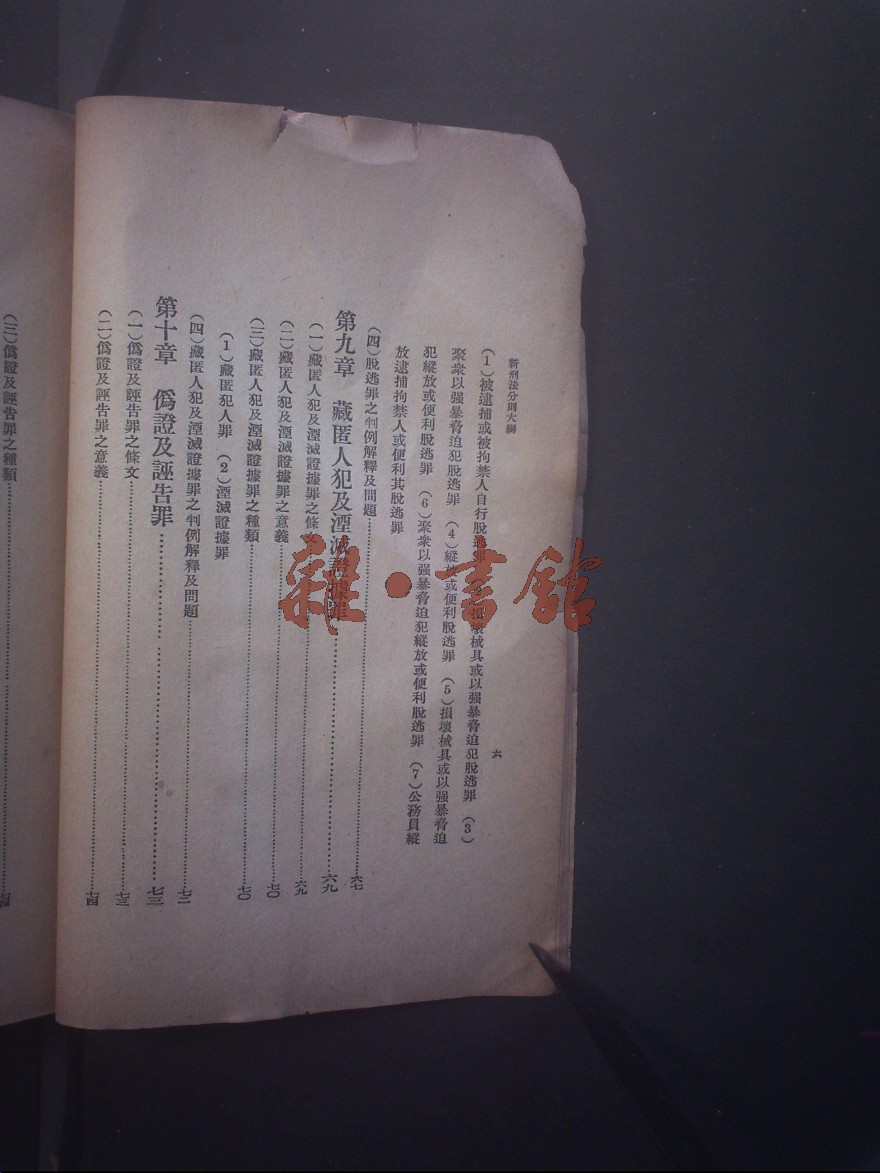 新刑法分則大綱
六
(1)被逮捕或被拘禁人自行脫逃罪 損壞械具或以强暴脅迫犯脫逃罪 (3)
聚衆以强暴脅迫犯脫逃罪 (4)縱放或便利脫逃罪 (5)損壞械具或以强暴脅迫
犯縱放或便利脫逃罪 (6)聚衆以强暴脅迫犯縱放或便利脫逃罪 (7)公務員縱
放逮捕拘禁人或便利其脫逃罪
(四)脫逃罪之判例解釋及問題……六七
第九章 藏匿人犯及湮滅證據罪……六九
(一)藏匿人犯及湮滅證據罪之條文……六九
(二)藏匿人犯及湮滅證據罪之意義……七〇
(三)藏匿人犯及湮滅證據罪之種類……七〇
(1)藏匿犯人罪 (2)湮滅證據罪
(四)藏匿人犯及湮滅證據罪之判例解釋及問題……七二
第十章 僞證及誣告罪……七三
(一)僞證及誣告罪之條文……七三
(二)僞證及誣告罪之意義……七四
(三)僞證及誣告罪之種類……
雜·書館